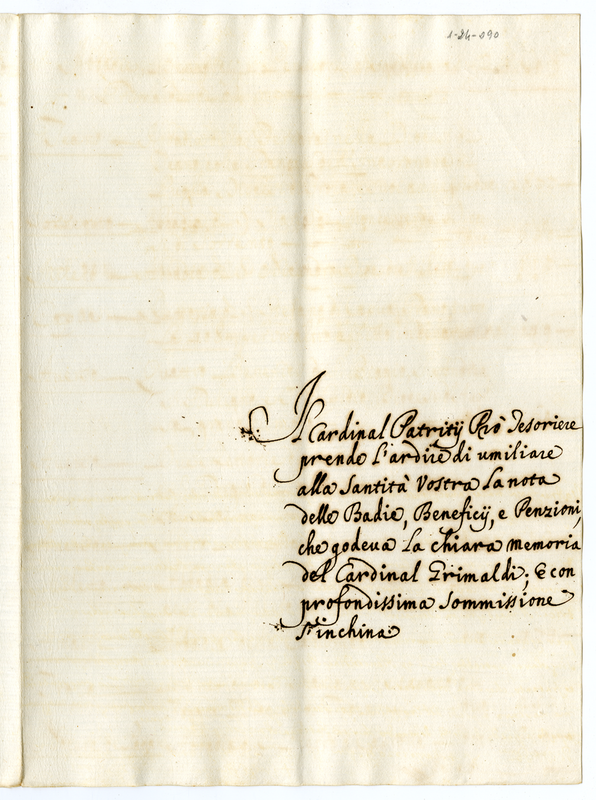 1-24-290
Il Cardinal Patritij Prò Tesoriere
prende l'ardire di umiliare
alla Santità Vostra la nota
delle Badie, Beneficij, e Penzioni,
che godeua la chiara memoria
del Cardinal Grimaldi; E con
profondissima sommissione
s'inchina